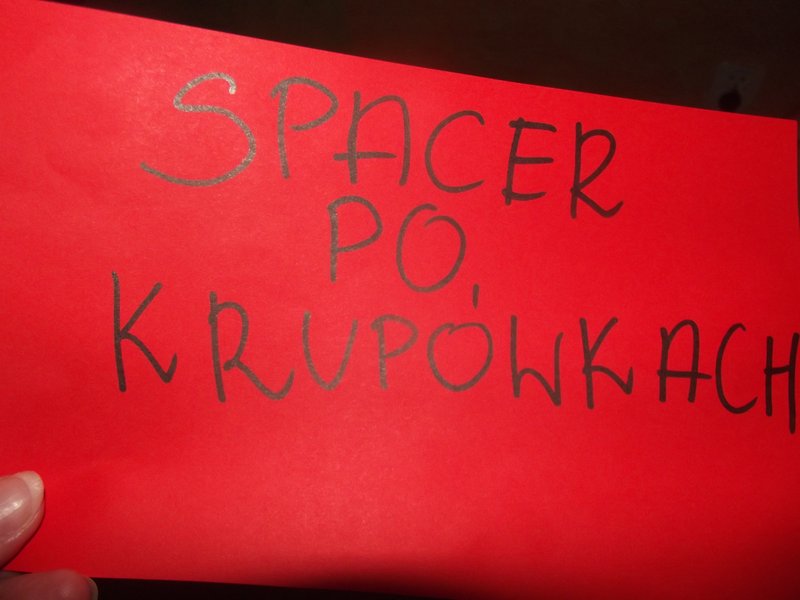 SPACER
PO
KRUPÓWKACH